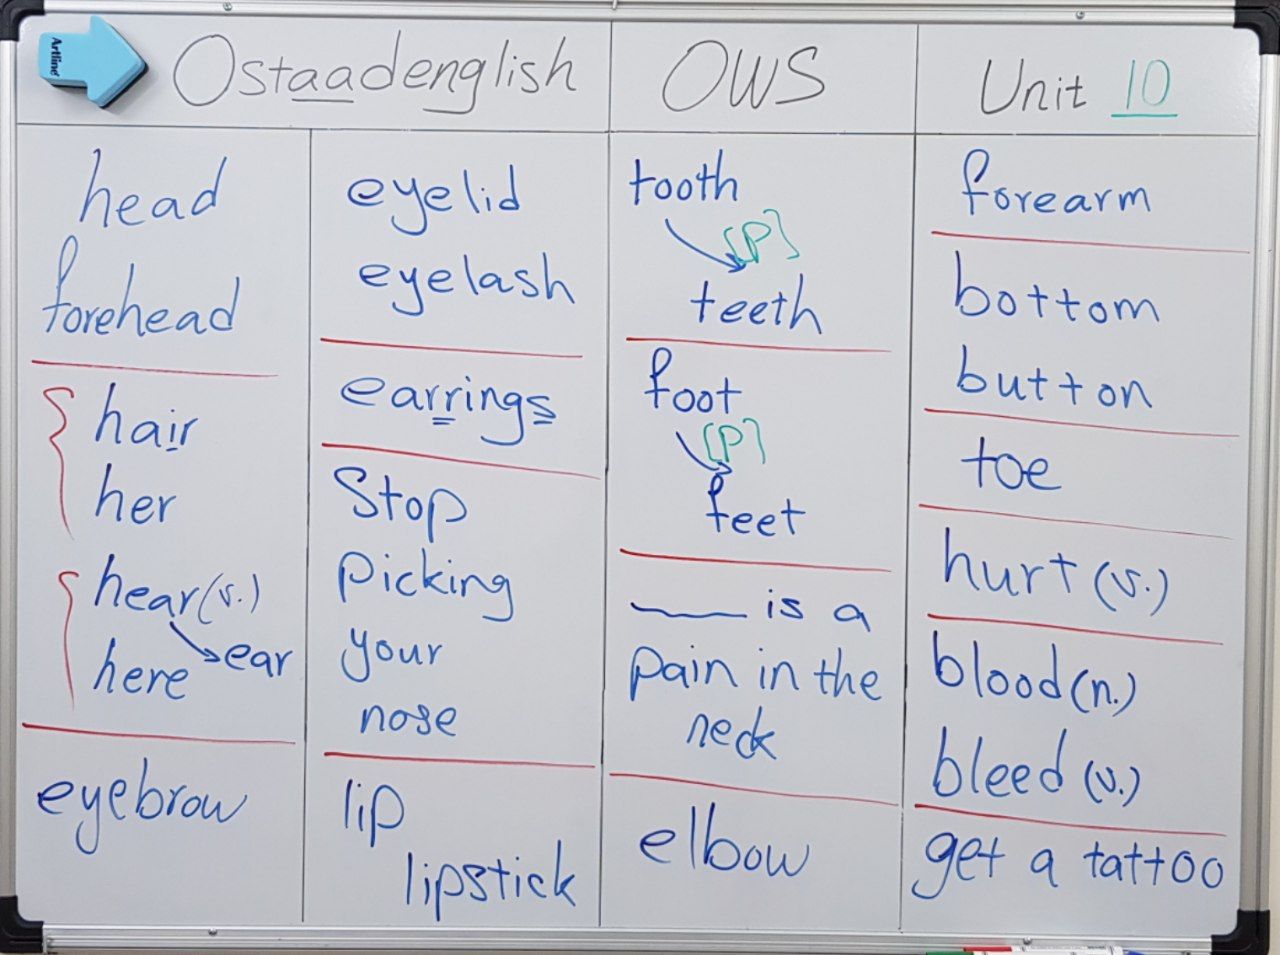 Artline
Ostaadenglish
OWS
Unit 10
head
forehead
hair
her
hear (v.)
ear
here
eyebrow
eyelid
eyelash
earrings
Stop
Picking
your
nose
lip
lipstick
tooth
[P]
teeth
foot
[P]
feet
____ is a
Pain in the
neck
elbow
forearm
bottom
button
toe
hurt (v.)
blood (n.)
bleed (v.)
get a tattoo